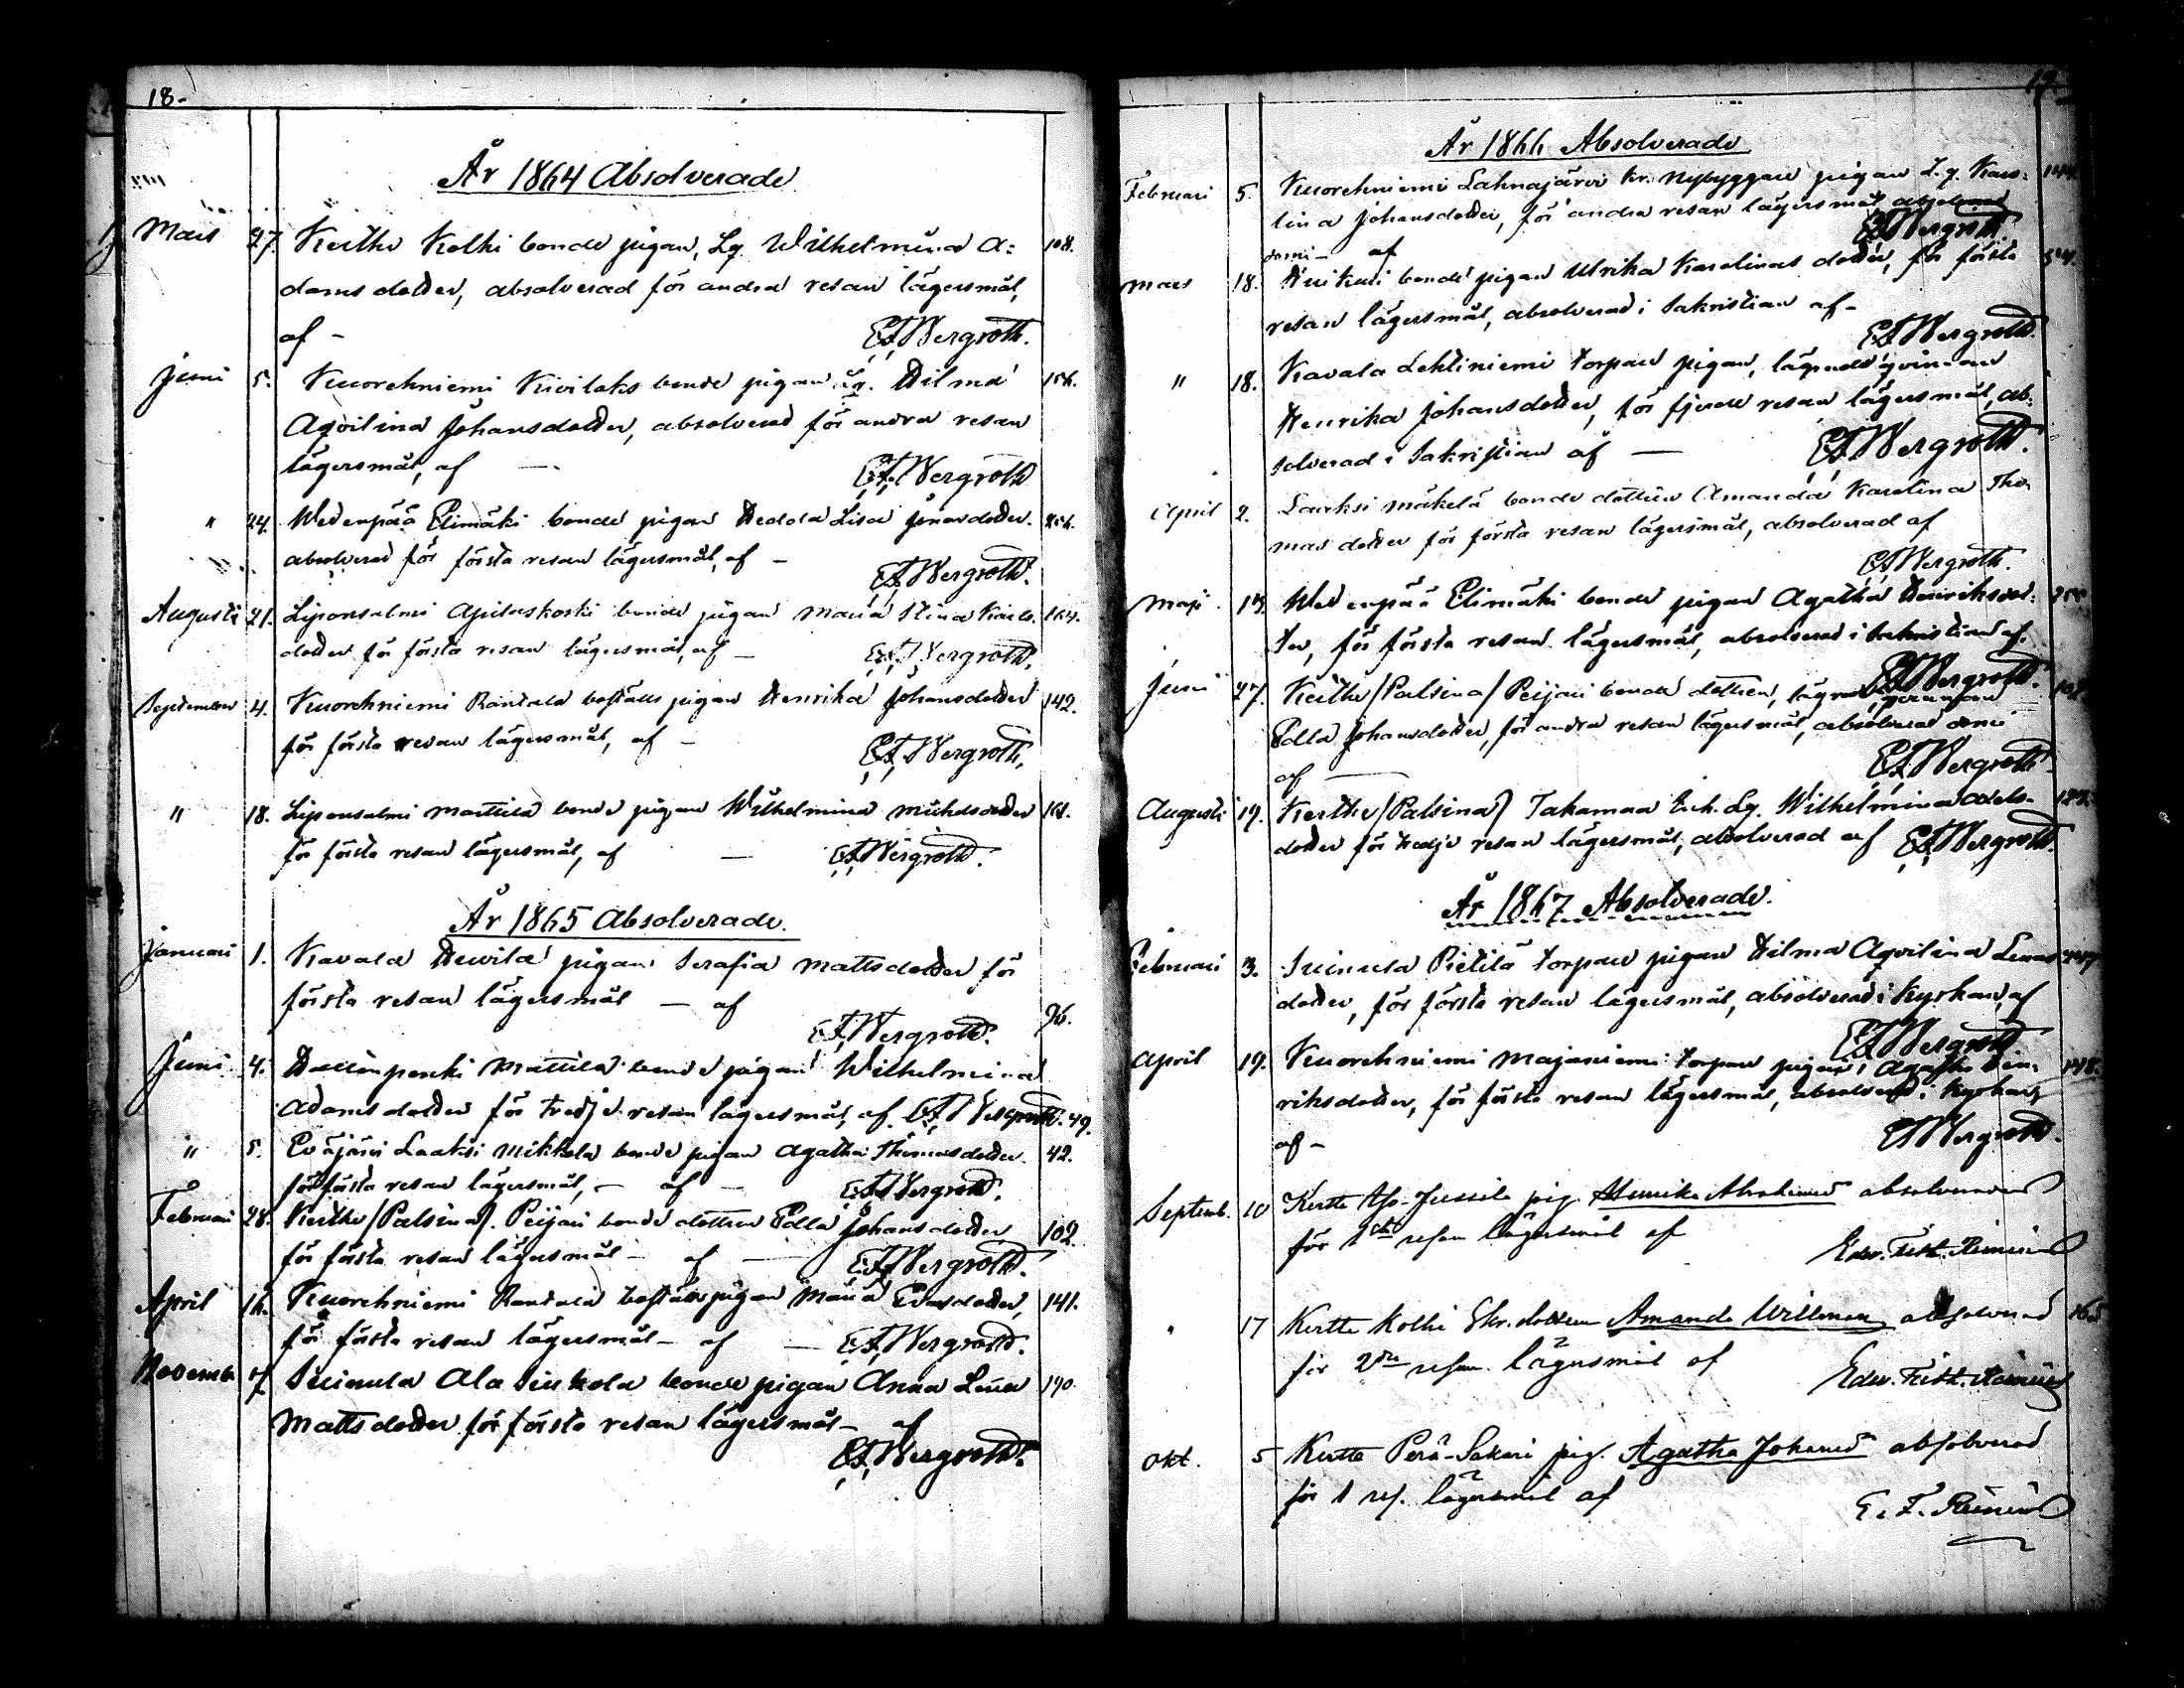 18.
År 1864 Absolverade
Mars 27. Keithe Kolhi bonde pigan, Lq. Wilhelmina A= 108.
dams dotter, absolverad för andra resan lägersmål,
af - E. F. Bergroth.
Juni 5. Kuorehniemi Kivilaks bonde pigan Lq. Hilma 156.
Aqvilina Johansdotter, absolverad för andra resan
lägersmål, af — E. F. Bergroth
" 24. Wedenpää Elimäki bonde pigan Hedda Lisa dotter.
absolverad för första resan lägersmål, af - E. F. Bergroth.
Augusti 21. Liponsalmi bonde pigan Maria Stina 164.
dotter för första resan lägersmål, af - E. F. Bergroth.
September 4. Kuorehniemi Rantala pigan Henrika Johansdotter 142.
för första resan lägersmål, af - E. F. Bergroth.
" 18. Liponsalmi Mattila bonde pigan Wilhelmina Michelsdotter
för första resan lägersmål, af — E. F. Bergroth.
År 1865 Absolverade.
Januari 1. Kavala pigan Serafia Mattsdotter för
första resan lägersmål — af 96.
E. F. Bergroth.
Juni 4. Mattila bonde pigan Wilhelmina
Adams dotter för tredje resan lägersmål, af E. F. Bergroth. 49.
" 5. Laaksi Mikkela bonde pigan Agatha Thomasdotter. 42.
för första resan lägersmål, — af — E. F. Bergroth.
Februari 28. Keithe (Palsina). Peijari bonde dottren Edla Johansdotter 102.
för första resan lägersmål - af — E. F. Bergroth.
April 16. Kuorehniemi Rantala pigan Maria dotter, 141.
för första resan lägersmål - af — E. F. Bergroth.
Novemb. 5. Suinula Ala bonde pigan Anna Lena 190.
Matts dotter för första resan lägersmål - af
E. F. Bergroth.
19.
År 1866 Absolverade
Februari 5. Kuorehniemi Lahnajärvi kr. nybyggare pigan L. q. Karo= 144.
lina Johansdotter, för andra resan lägersmål
domi - af E. F. Bergroth.
Mars 18. bonde pigan Ulrika Karolinas dotter, för första
resan lägersmål, absolverad i Sakristian af -
E. F. Bergroth.
" 18. Kavala Lehtiniemi torpare pigan, lägrade qvinnan
Henrika Johansdotter, för fjerde resan lägersmål, ab=
solverad i Sakristian af — E. F. Bergroth.
April 2. Laaksi Mäkelä bonde dottren Amanda Karolina Tho=
mas dotter för första resan lägersmål, absolverad af
E. F. Bergroth.
Maji 13. Wedenpää Elimäki bonde pigan Agatha Henriksdot=
ter, för första resan lägersmål, absolverad i Sakristian af.
E. F. Bergroth.
Juni 27. Keithe (Palsina) Peijari bonde dottren, lägrade qvinnan 102
Edla Johansdotter, för andra resan lägersmål, absolverad domi
af — E. F. Bergroth
Augusti 19. Keithe (Palsina) Takamaa Lq. Wilhelmina
dotter för tredje resan lägersmål, absolverad af E. F. Bergroth.
År 1867 Absolverade.
Februari 3. Suinula Pietilä torpare pigan Hilma Aqvilina
dotter, för första resan lägersmål, absolverad i Kyrkan, af
E. F. Bergroth
April 19. Kuorehniemi Majaniemi torpare pigan Agatha Hen= 148.
riksdotter, för första resan lägersmål, absolverad i Kyrkan,
af - E. F. Bergroth.
Septemb. 10 Kertte Jussila pig. Henrika absolverad
för 1sta resan lägersmål af
Edw. Fith. Reinius
" 17 Kertte Kolhi dottren Amanda Willman absolverad
för 2dra resan lägersmål af Edw. Fith. Reinius
Okt. 5 Kertte Perä-Sakari pig. Agatha Johansd absolverad
för 1 res. lägersmål af
E. F. Reinius